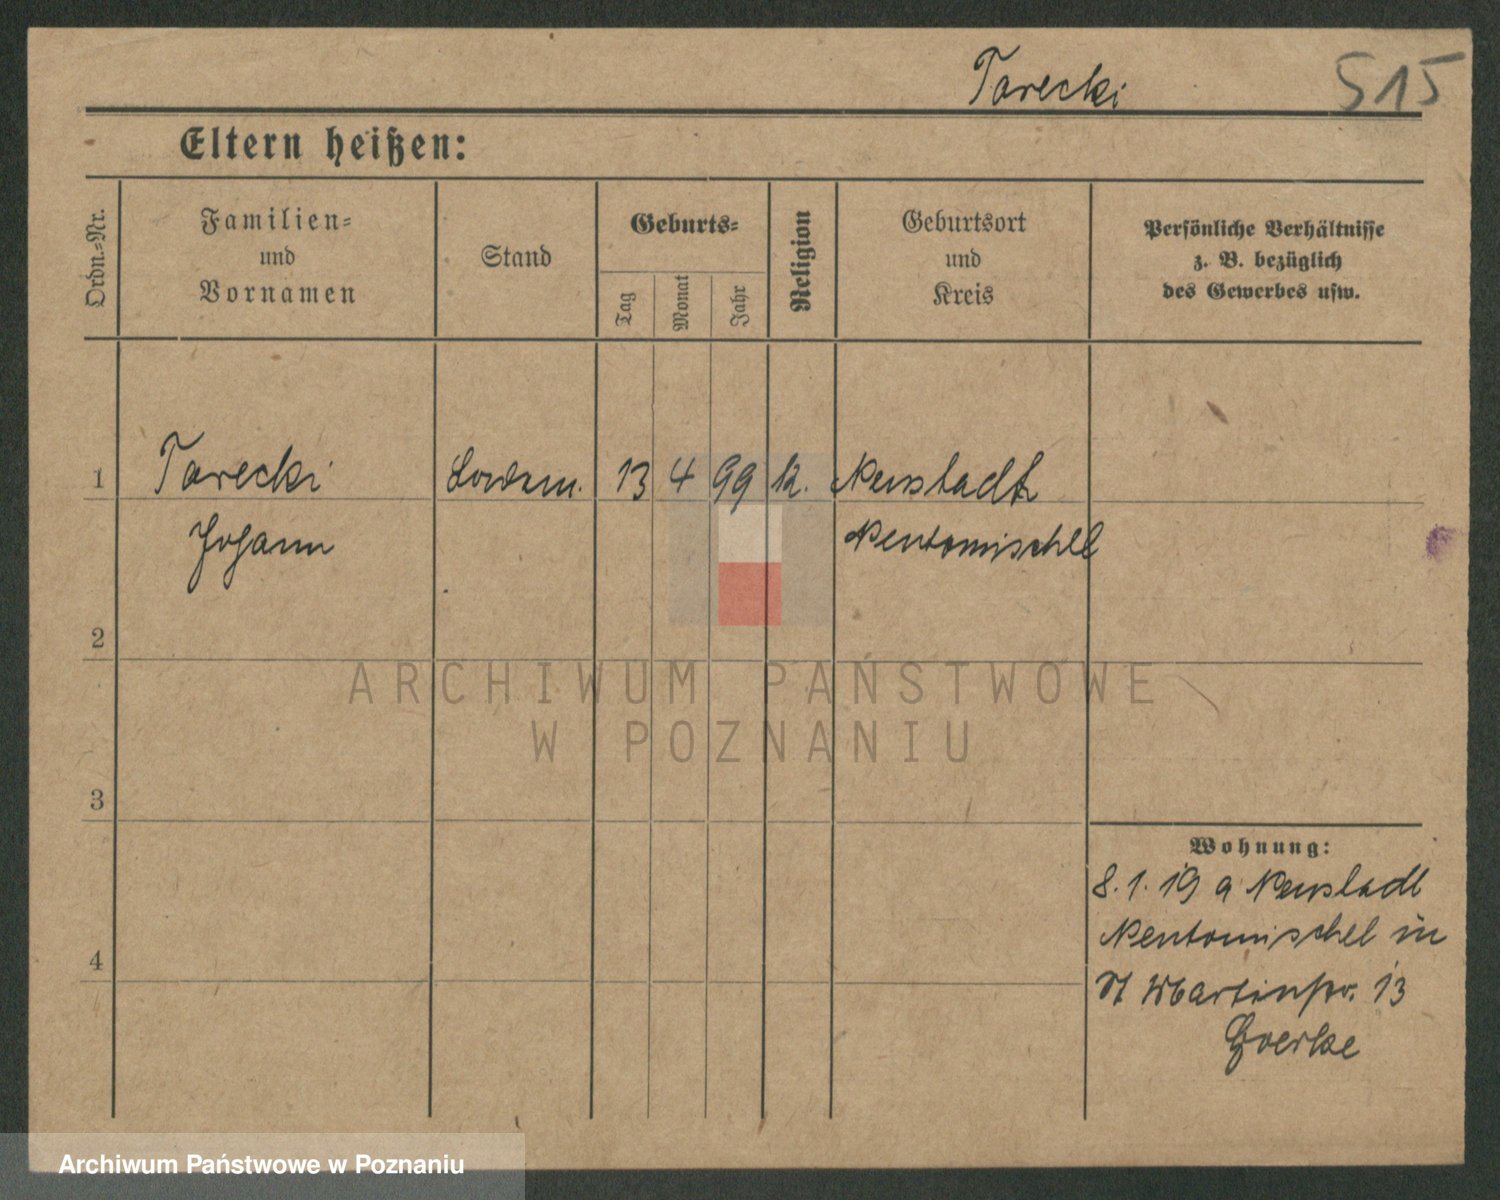 Tarecki
515
Eltern heißen:
Ordn.-Nr.
Familien-
und
Vornamen
Stand
Geburts-
Tag
Monat
Jahr
Religion
Geburtsort
und
Kreis
Persönliche Verhältnisse
z. B. bezüglich
des Gewerbes usw.
1 Tarecki 13 4 99 k. Neustadt
Johann Neutomischel
2
3
4
Wohnung:
8.1.19 a Neustadt
Neutomischel in
St Martinstr. 13
Goerke
ARCHIWUM PAŃSTWOWE
W POZNANIU
Archiwum Państwowe w Poznaniu